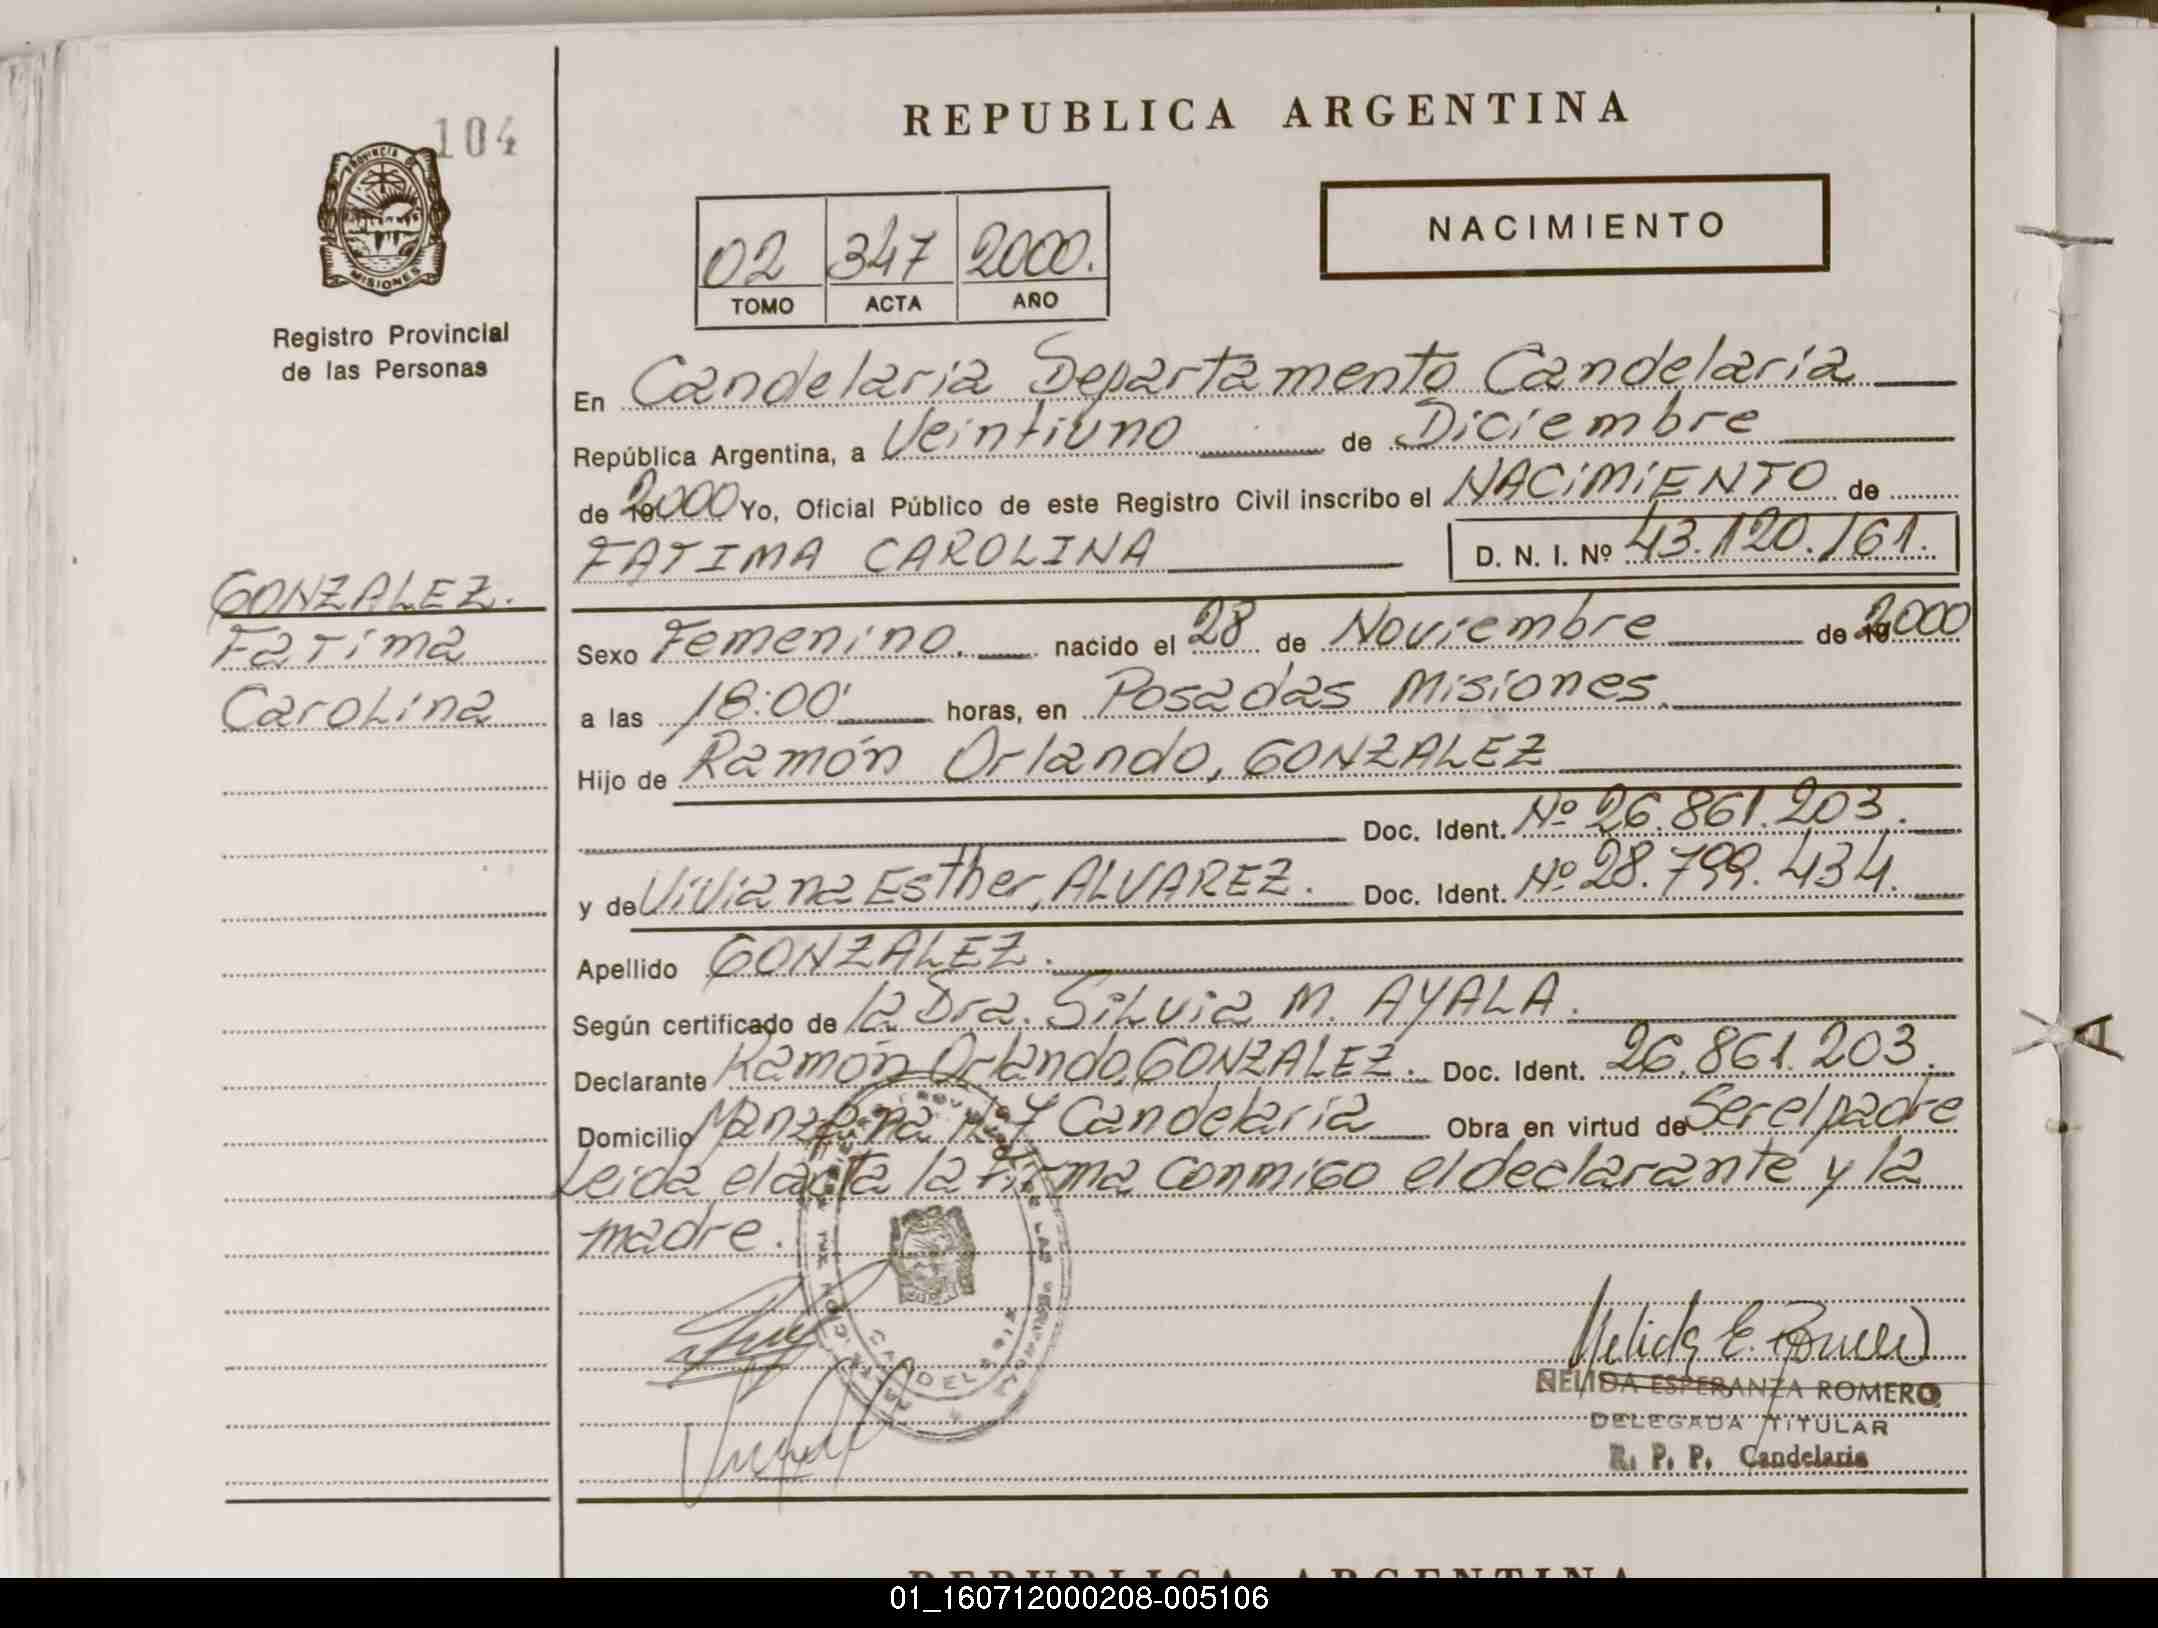 104
PROVINCIA DE
MISIONES
Registro Provincial
de las Personas
GONZALEZ.
Fatima
Carolina
REPUBLICA ARGENTINA
02 347 2000.
TOMO ACTA AÑO
NACIMIENTO
En Candelaria Departamento Candelaria
República Argentina, a Veintiuno de Diciembre
de 2000 Yo, Oficial Público de este Registro Civil inscribo el NACIMIENTO de
FATIMA CAROLINA D. N. I. Nº 43.120.161.
Sexo Femenino. nacido el 28 de Noviembre de 2000
a las 18:00' horas, en Posadas Misiones.
Hijo de Ramón Orlando, GONZALEZ
Doc. Ident. Nº 26.861.203.
y de Viviana Esther, ALVAREZ. Doc. Ident. Nº 28.799.434.
Apellido GONZALEZ.
Según certificado de la Dra. Silvia M. AYALA.
Declarante Ramón Orlando, GONZALEZ. Doc. Ident. 26.861.203.
Domicilio Manzana Candelaria Obra en virtud de Ser el padre
Leida el acta la firma conmigo el declarante y la
madre.
NELIDA ESPERANZA ROMERO
DELEGADA TITULAR
R. P. P. Candelaria
REPUBLICA ARGENTINA
01_160712000208-005106